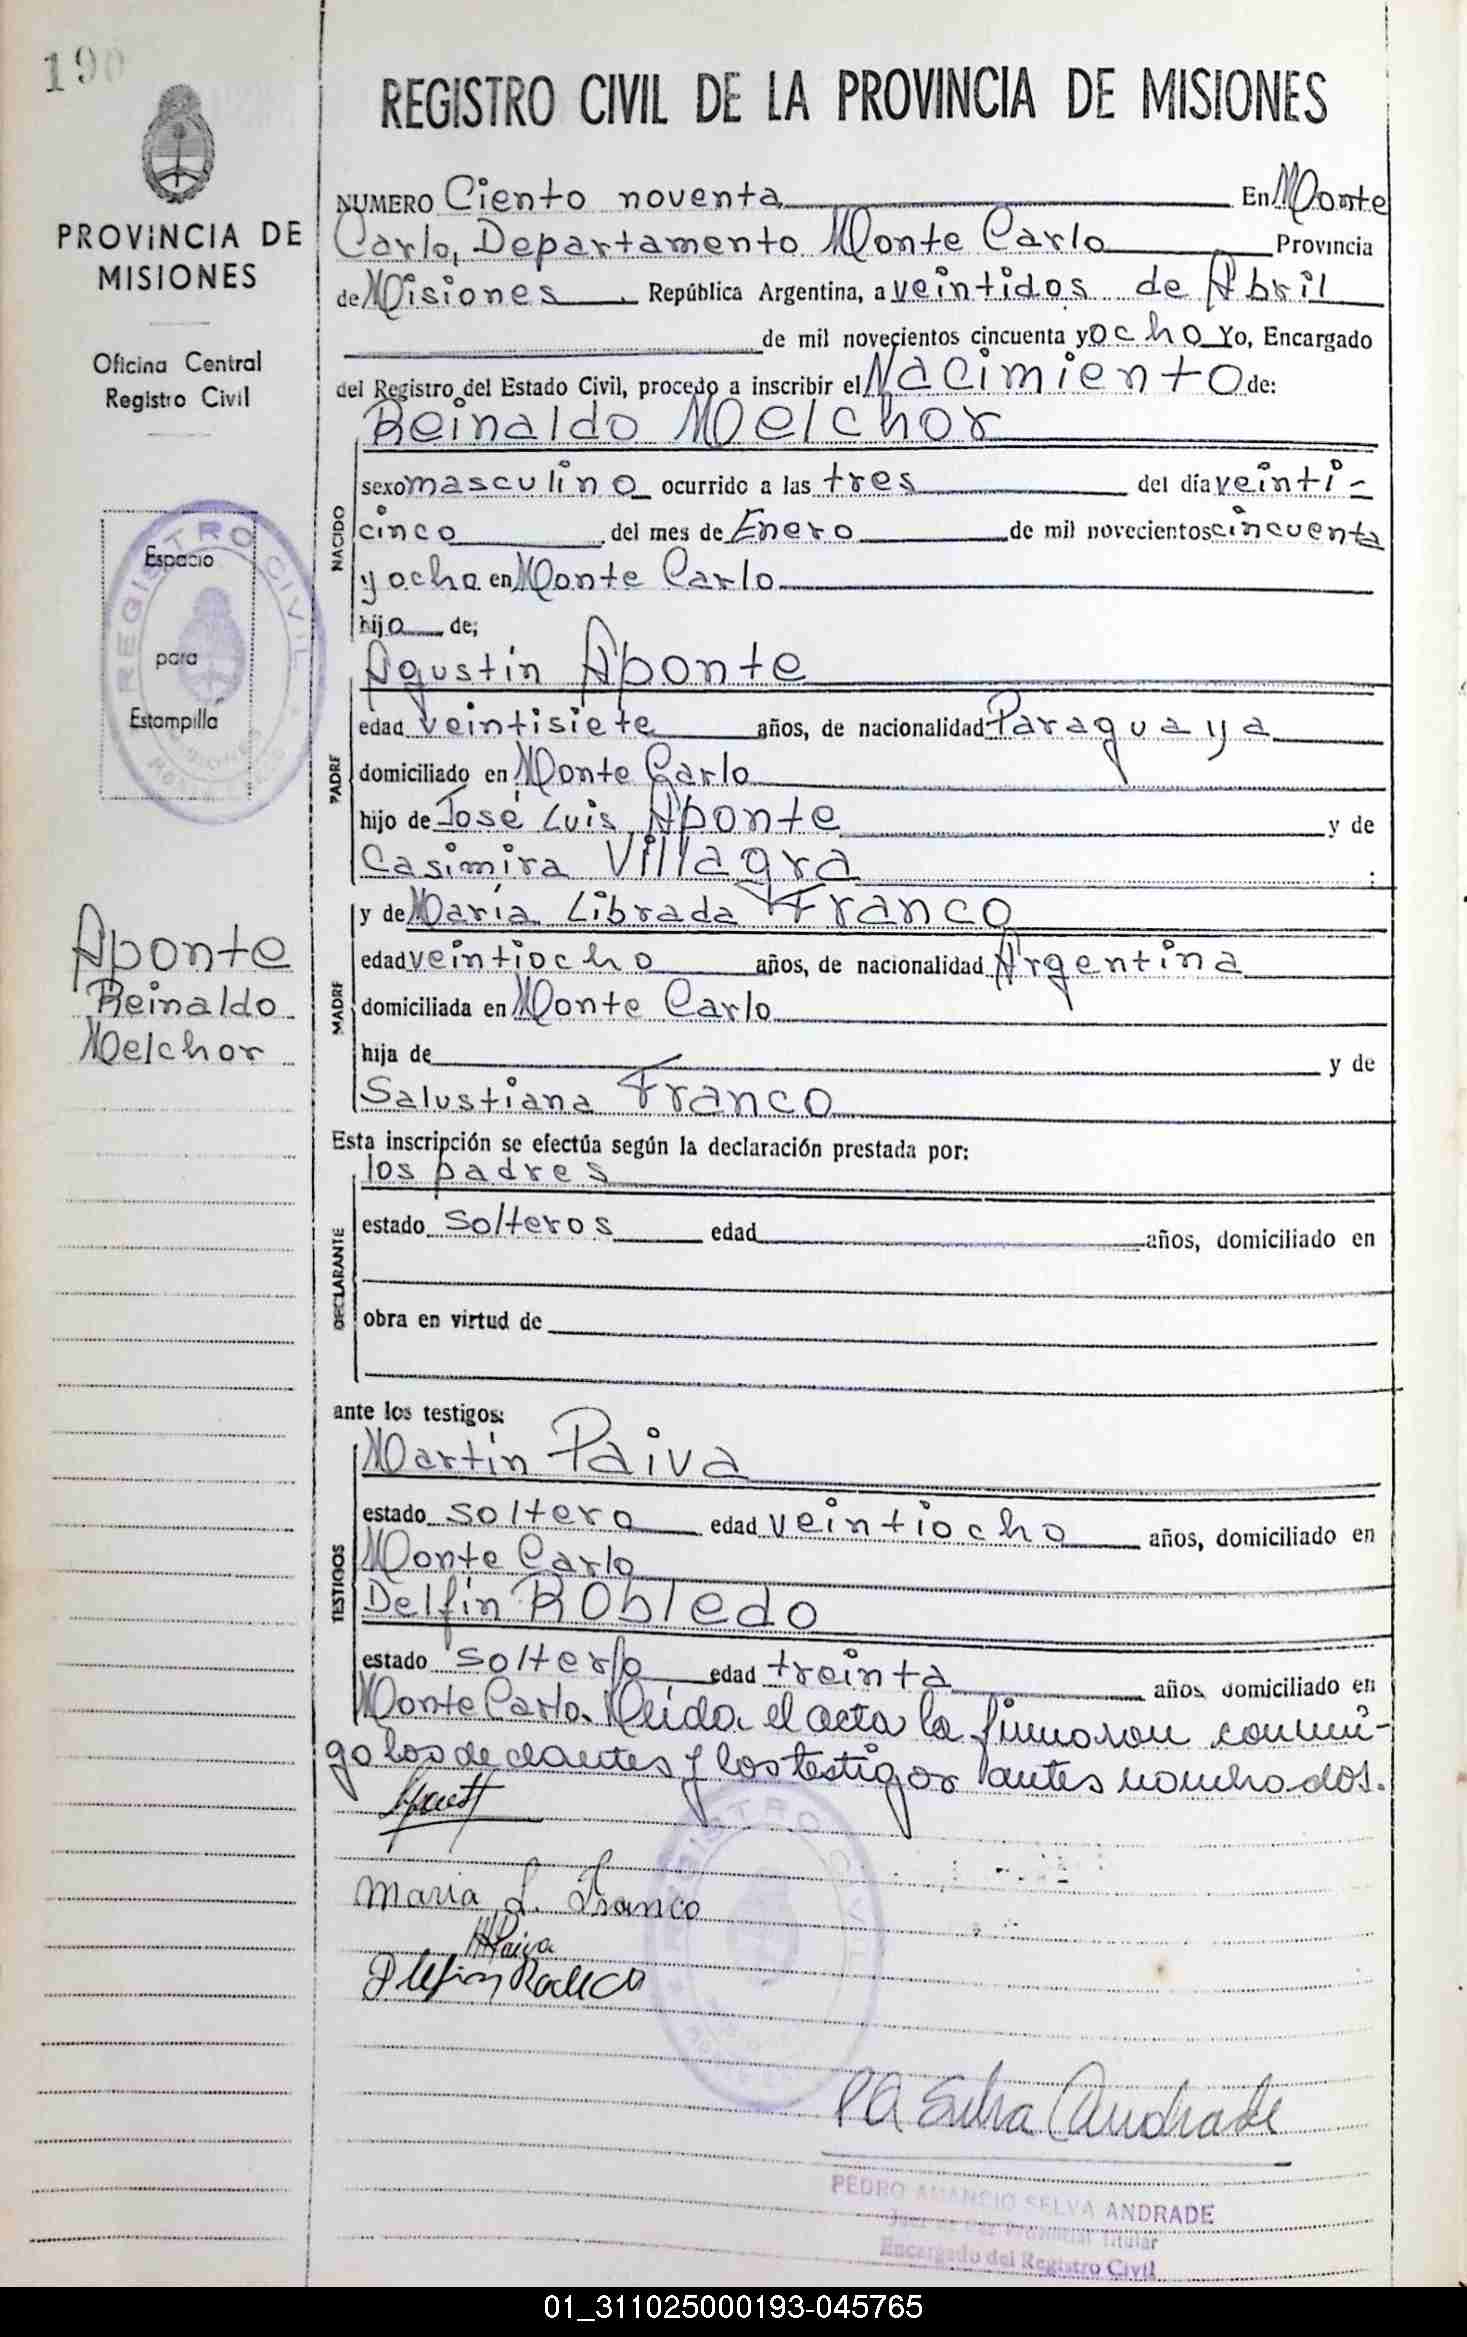 190
PROVINCIA DE
MISIONES
Oficina Central
Registro Civil
REGISTRO CIVIL
Espacio
para
Estampilla
Aponte
Reinaldo
Melchor
REGISTRO CIVIL DE LA PROVINCIA DE MISIONES
NUMERO Ciento noventa En Monte
Carlo, Departamento Monte Carlo Provincia
de Misiones República Argentina, a veintidos de Abril
de mil novecientos cincuenta y ocho Yo, Encargado
del Registro del Estado Civil, procedo a inscribir el Nacimiento de:
Reinaldo Melchor
NACIDO
sexo masculino ocurrido a las tres del día veinti-
cinco del mes de Enero de mil novecientos cincuenta
y ocho en Monte Carlo
hijo de;
Agustín Aponte
PADRE
edad veintisiete años, de nacionalidad Paraguaya
domiciliado en Monte Carlo
hijo de José Luis Aponte y de
Casimira Villagra
y de María Librada Franco
MADRE
edad veintiocho años, de nacionalidad Argentina
domiciliada en Monte Carlo
hija de y de
Salustiana Franco
Esta inscripción se efectúa según la declaración prestada por:
los padres
DECLARANTE
estado solteros edad años, domiciliado en
obra en virtud de
ante los testigos:
Martín Paiva
TESTIGOS
estado soltero edad veintiocho años, domiciliado en
Monte Carlo
Delfín Robledo
estado soltero edad treinta años domiciliado en
Monte Carlo. Leida el acta la firmaron conmi-
go los declantes y los testigos antes nombrados.
Maria L. Franco
MPaiva
REGISTRO CIVIL
PA Selva Andrade
PEDRO AMANCIO SELVA ANDRADE
Juez de Paz Provincial Titular
Encargado del Registro Civil
01_311025000193-045765